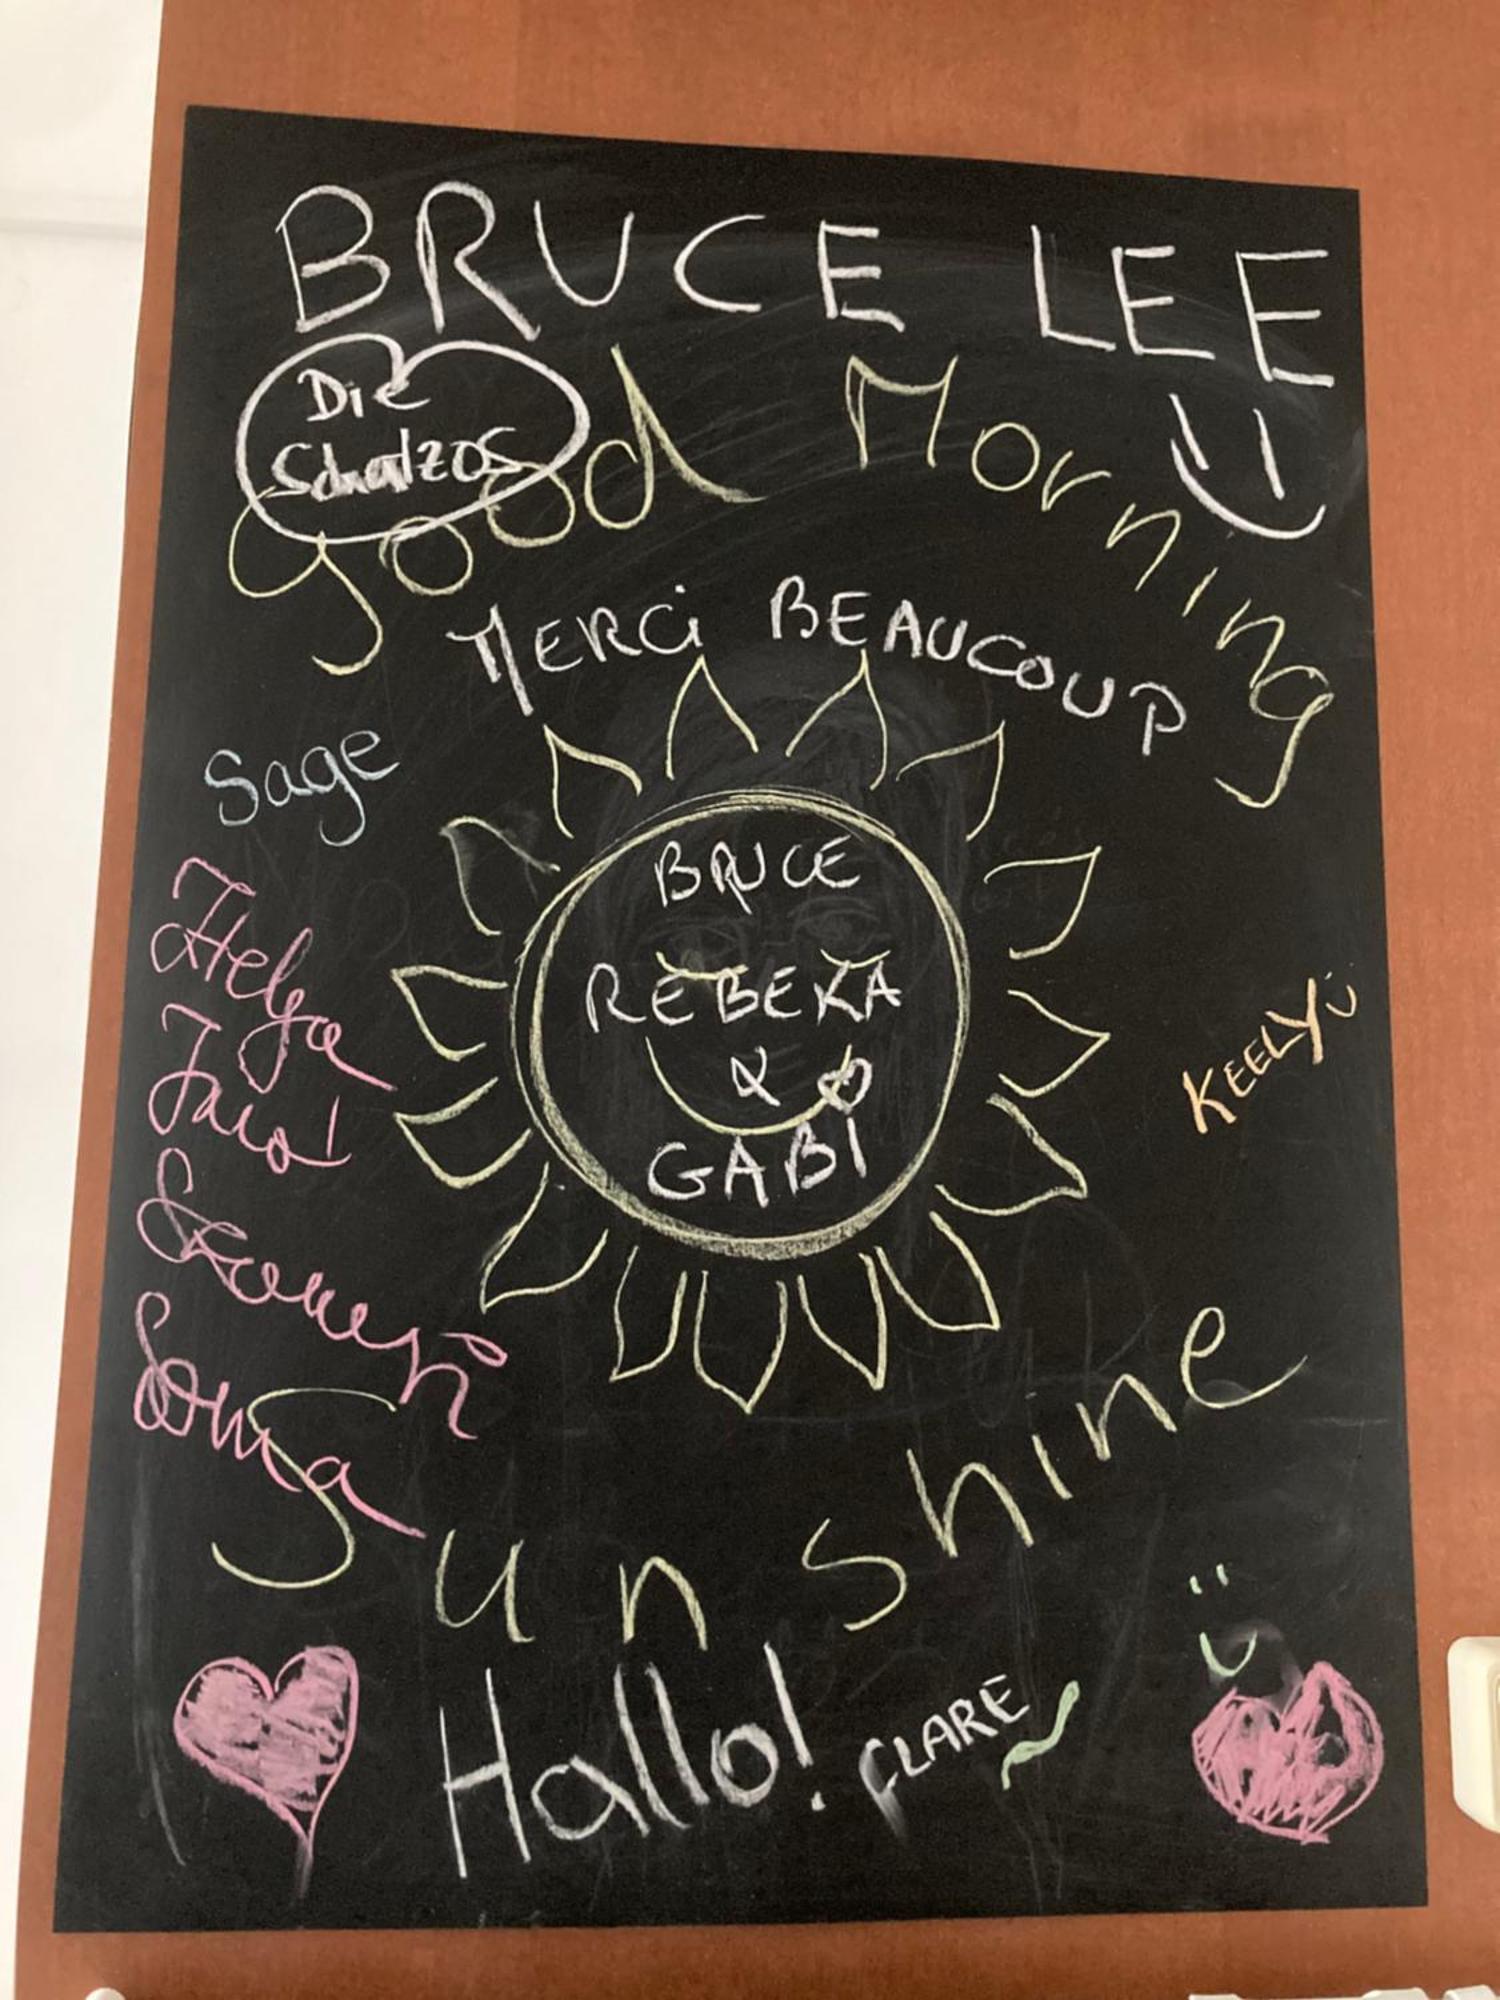 BRUCE LEE
Die
Schatzos
good Morning
MERCi BEAUCOUP
Sage
BRUCE
REBEKA
&
GABI
Helga
KEELY
Sonja
Sunshine
Hallo!
CLARE